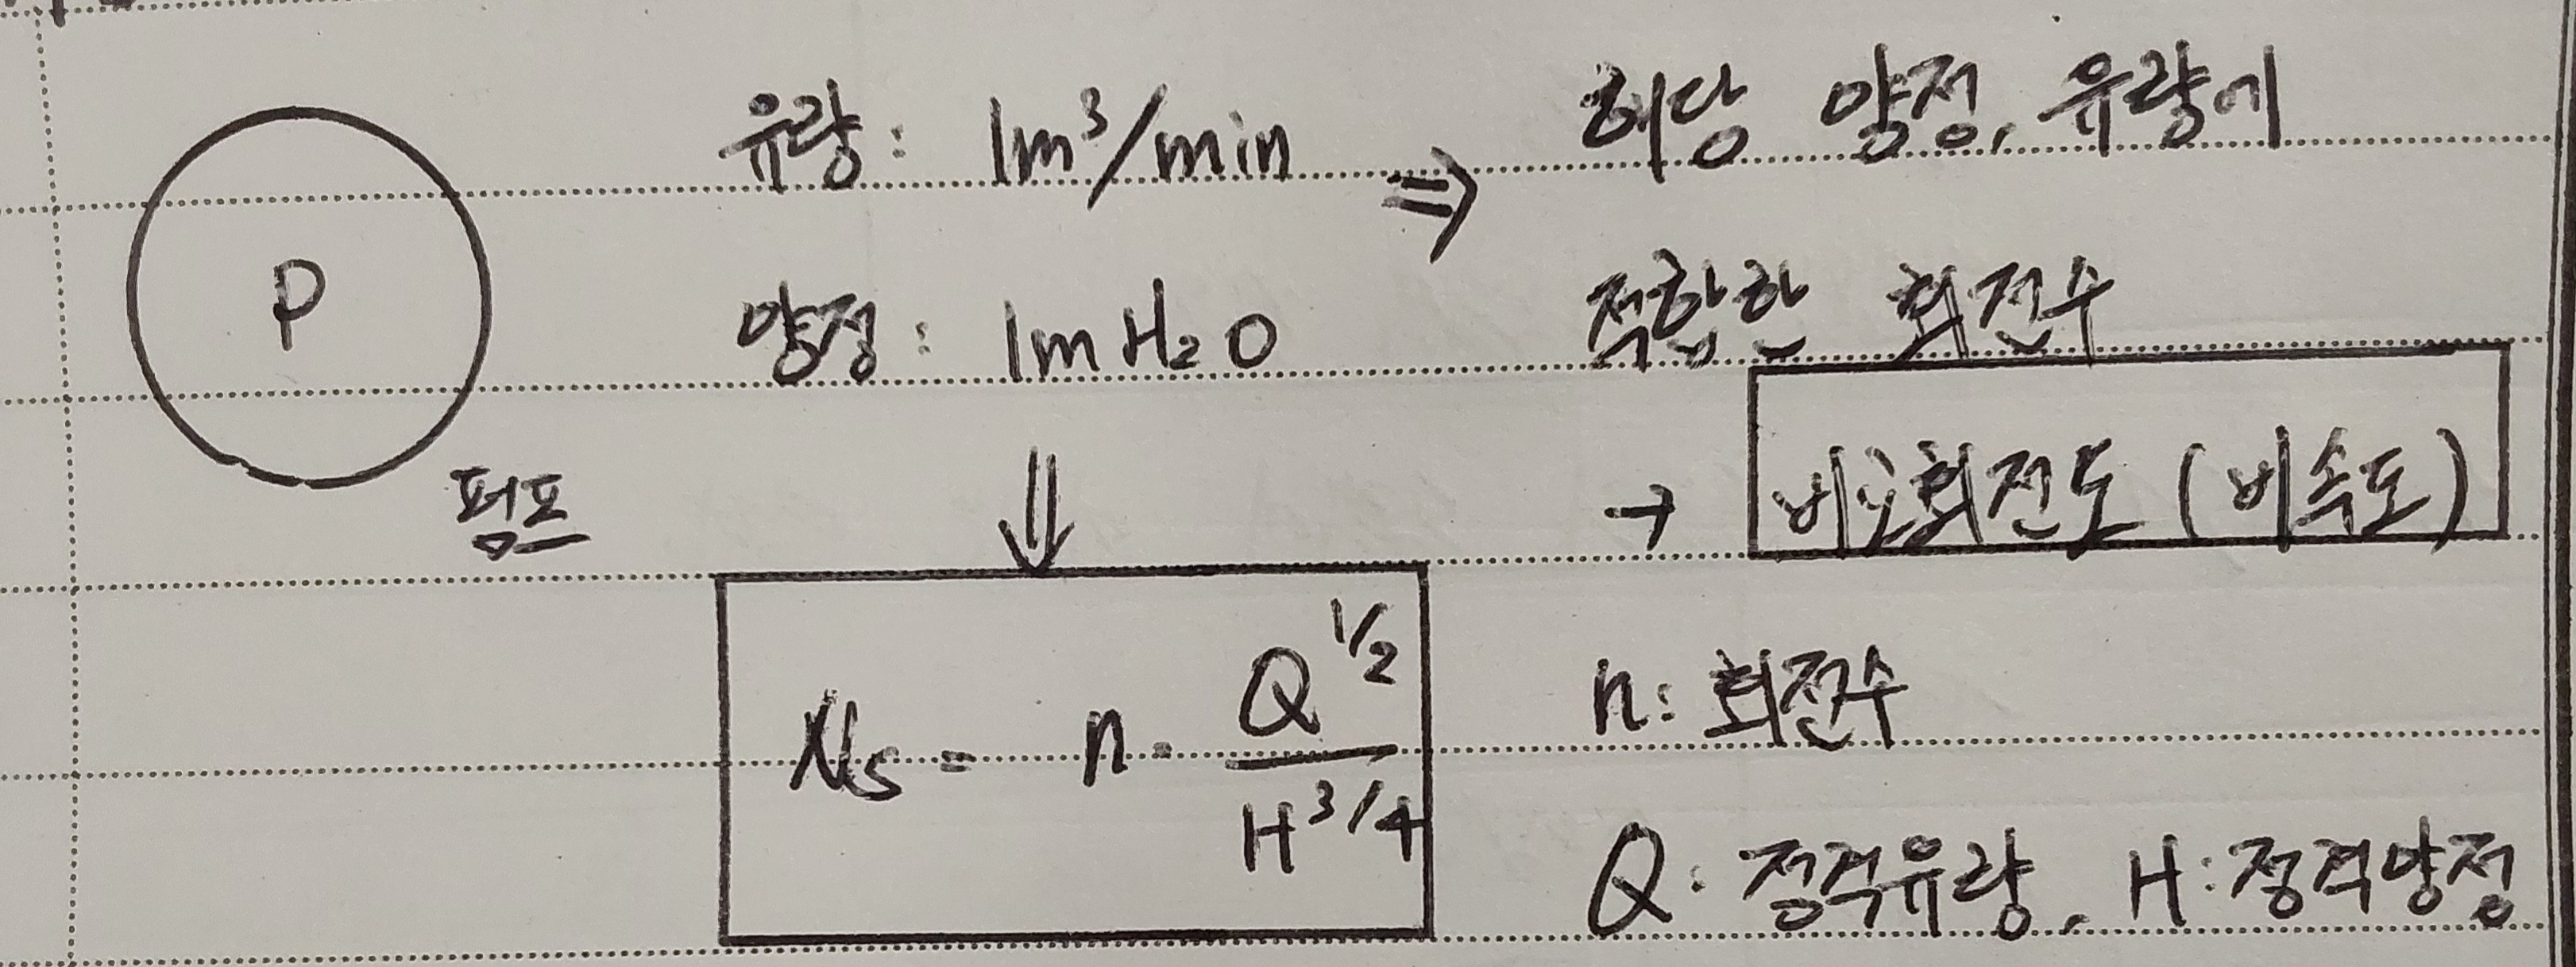 P
펌프
유량: 1m³/min ⇒ 해당 양정, 유량에
양정: 1mH₂O 적합한 회전수
→ 비교회전도 (비속도)
Ns = n · Q^1/2 / H^3/4
n: 회전수
Q: 정격유량, H: 정격양정